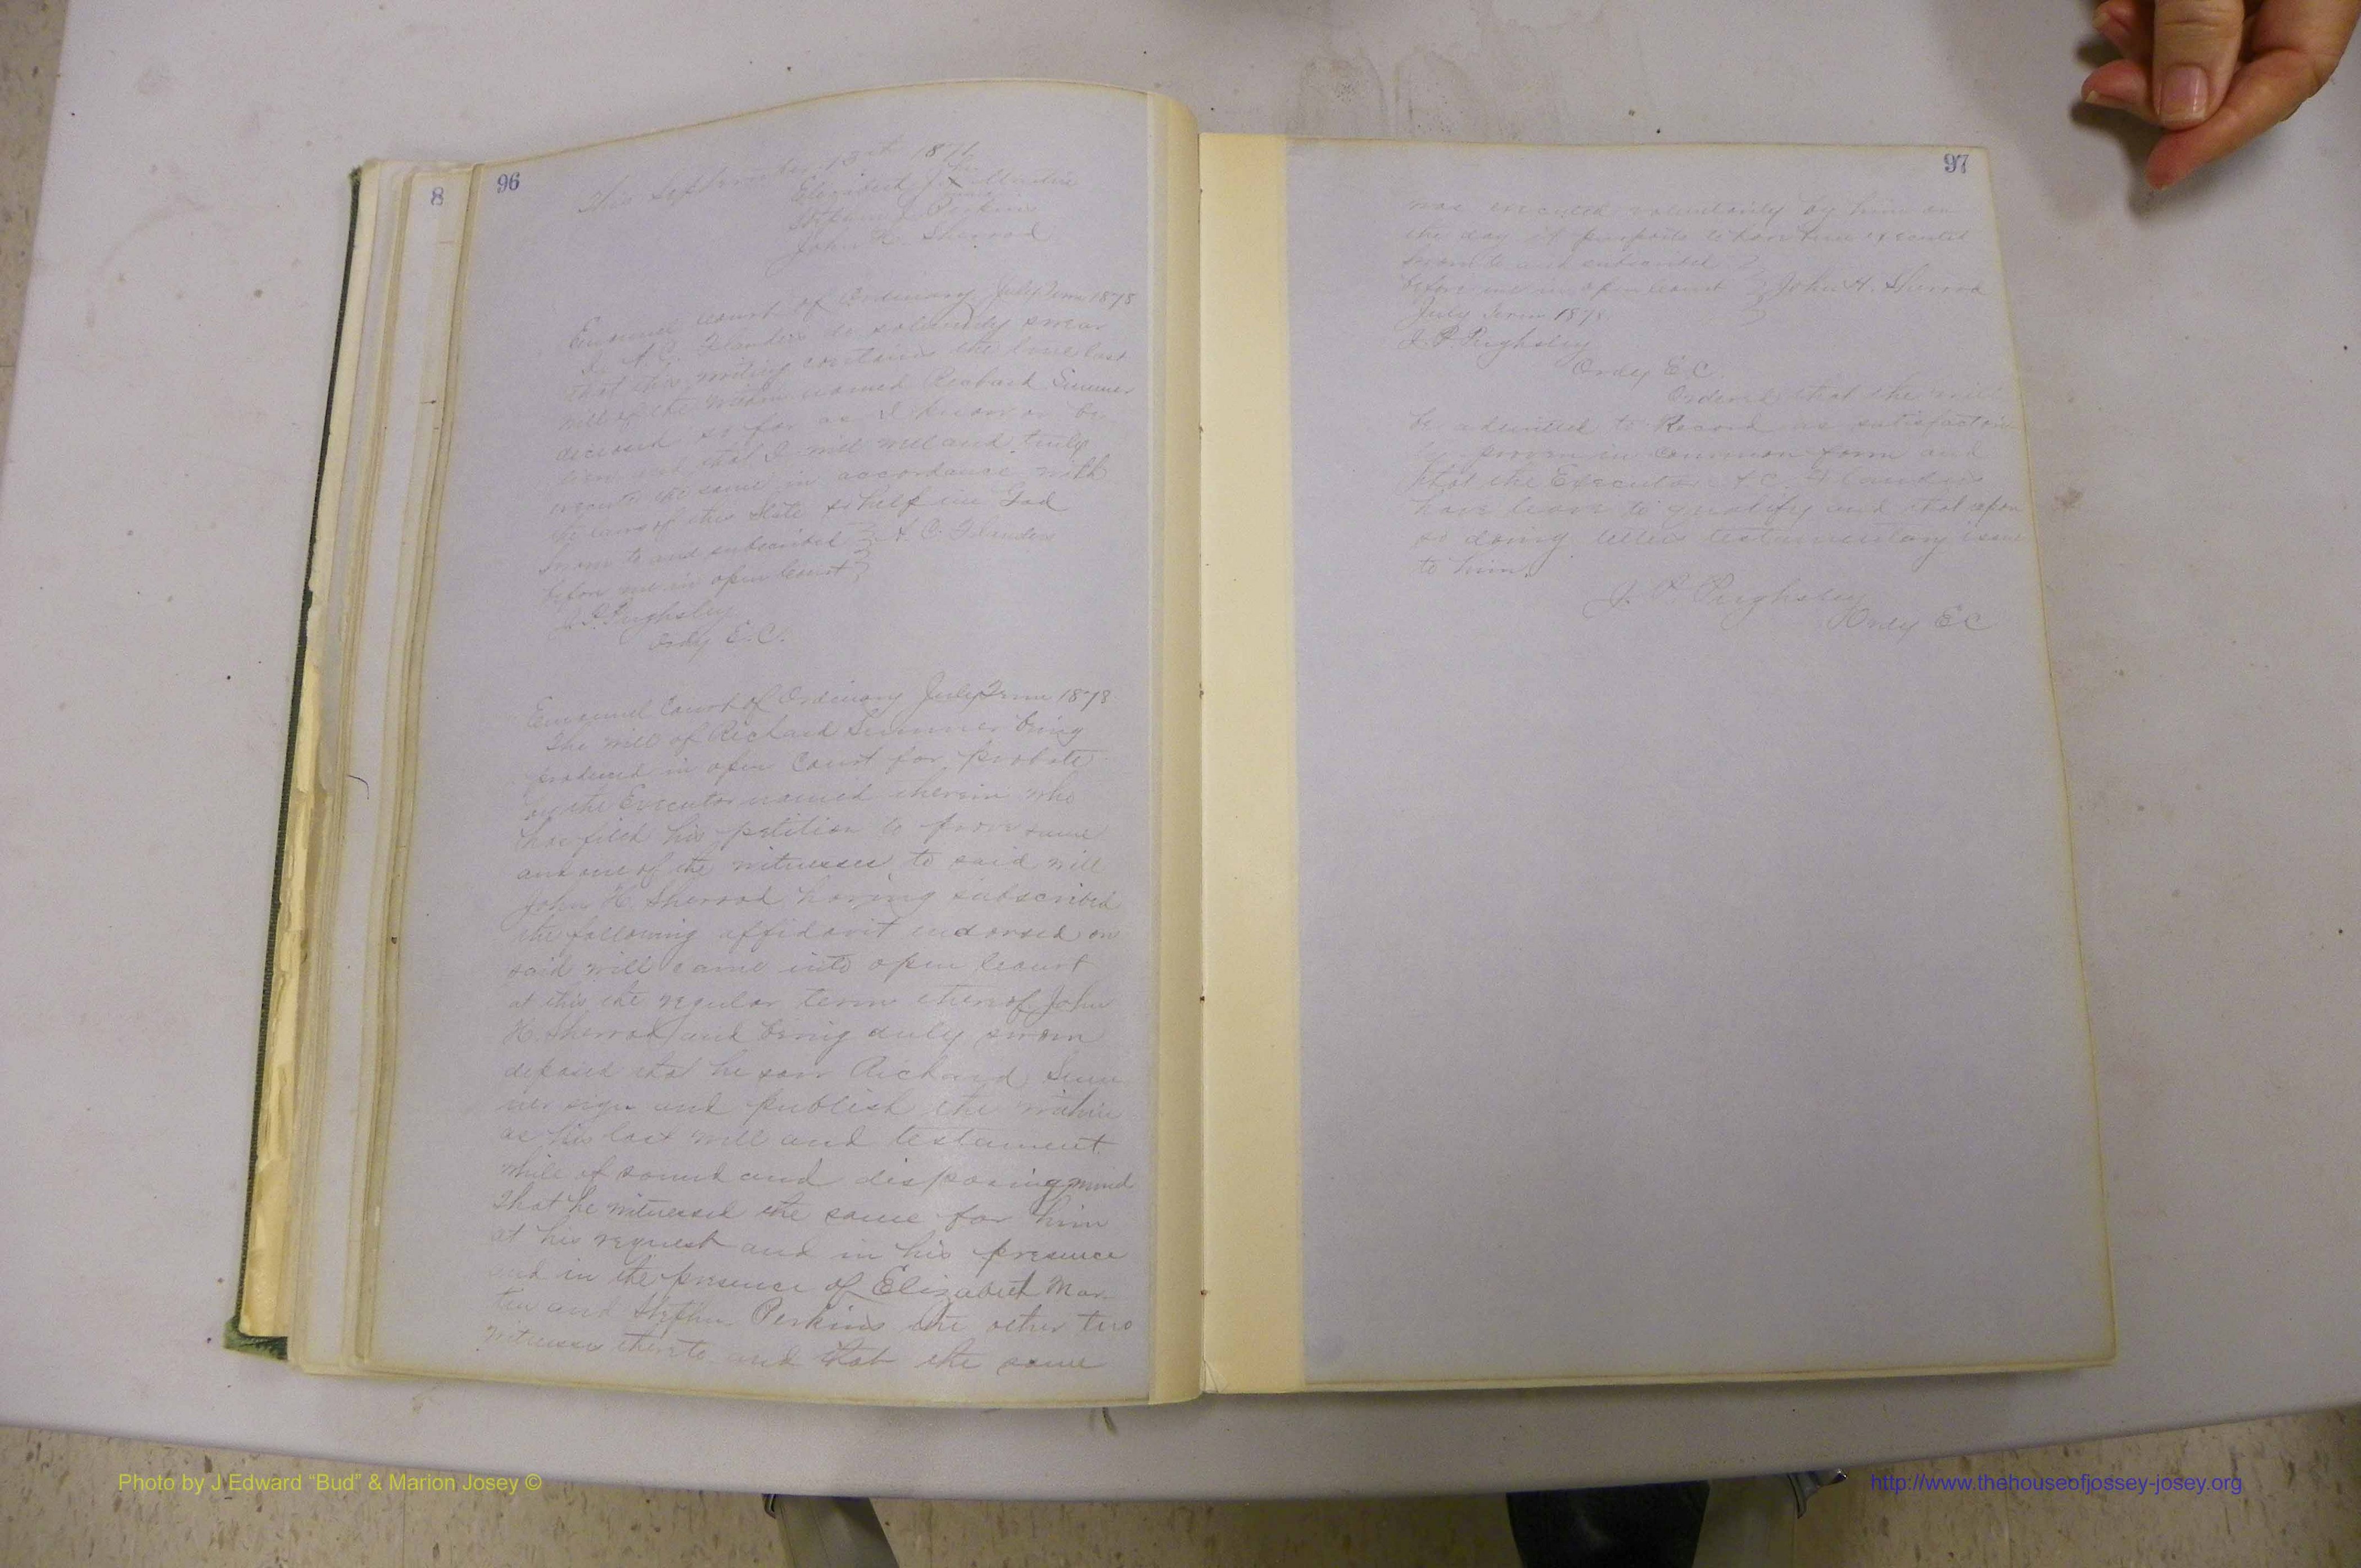 8
96
This September 13th 1871
Elizabeth J. Martin
Stephen J. Perkins
John H. Sherrod
Emanuel Court of Ordinary July Term 1878
I, A. C. Flanders do solemnly swear
that this writing contains the true last
will of the within named Richard Sumner
deceased so far as I know or be
lieve and that I will well and truly
execute the same in accordance with
the laws of this State so help me God
Sworn to and subscribed A. C. Flanders
before me in open Court
J. P. Pughsley
Ordy E. C.
Emanuel Court of Ordinary July Term 1878
The will of Richard Sumner being
produced in open Court for probate
by the Executor named therein who
has filed his petition to prove same
and one of the witnesses to said will
John H. Sherrod having subscribed
the following affidavit endorsed on
said will came into open Court
at this the regular term thereof John
H. Sherrod and being duly sworn
deposed that he saw Richard Sum
ner sign and publish the within
as his last will and testament
while of sound and disposing mind
That he witnessed the same for him
at his request and in his presence
and in the presence of Elizabeth Mar
tin and Stephen Perkins the other two
witnesses thereto and that the same
97
was executed voluntarily by him on
the day it purports to have been executed
Sworn to and subscribed
before me in open Court John H. Sherrod
July Term 1878
J. P. Pughsley
Ordy E. C.
Ordered that the will
be admitted to Record as satisfactori
ly proven in common form and
that the Executor A. C. Flanders
have leave to qualify and that upon
so doing letters testamentary issue
to him.
J. P. Pughsley
Ordy E C
Photo by J Edward “Bud” & Marion Josey ©
http://www.thehouseofjossey-josey.org